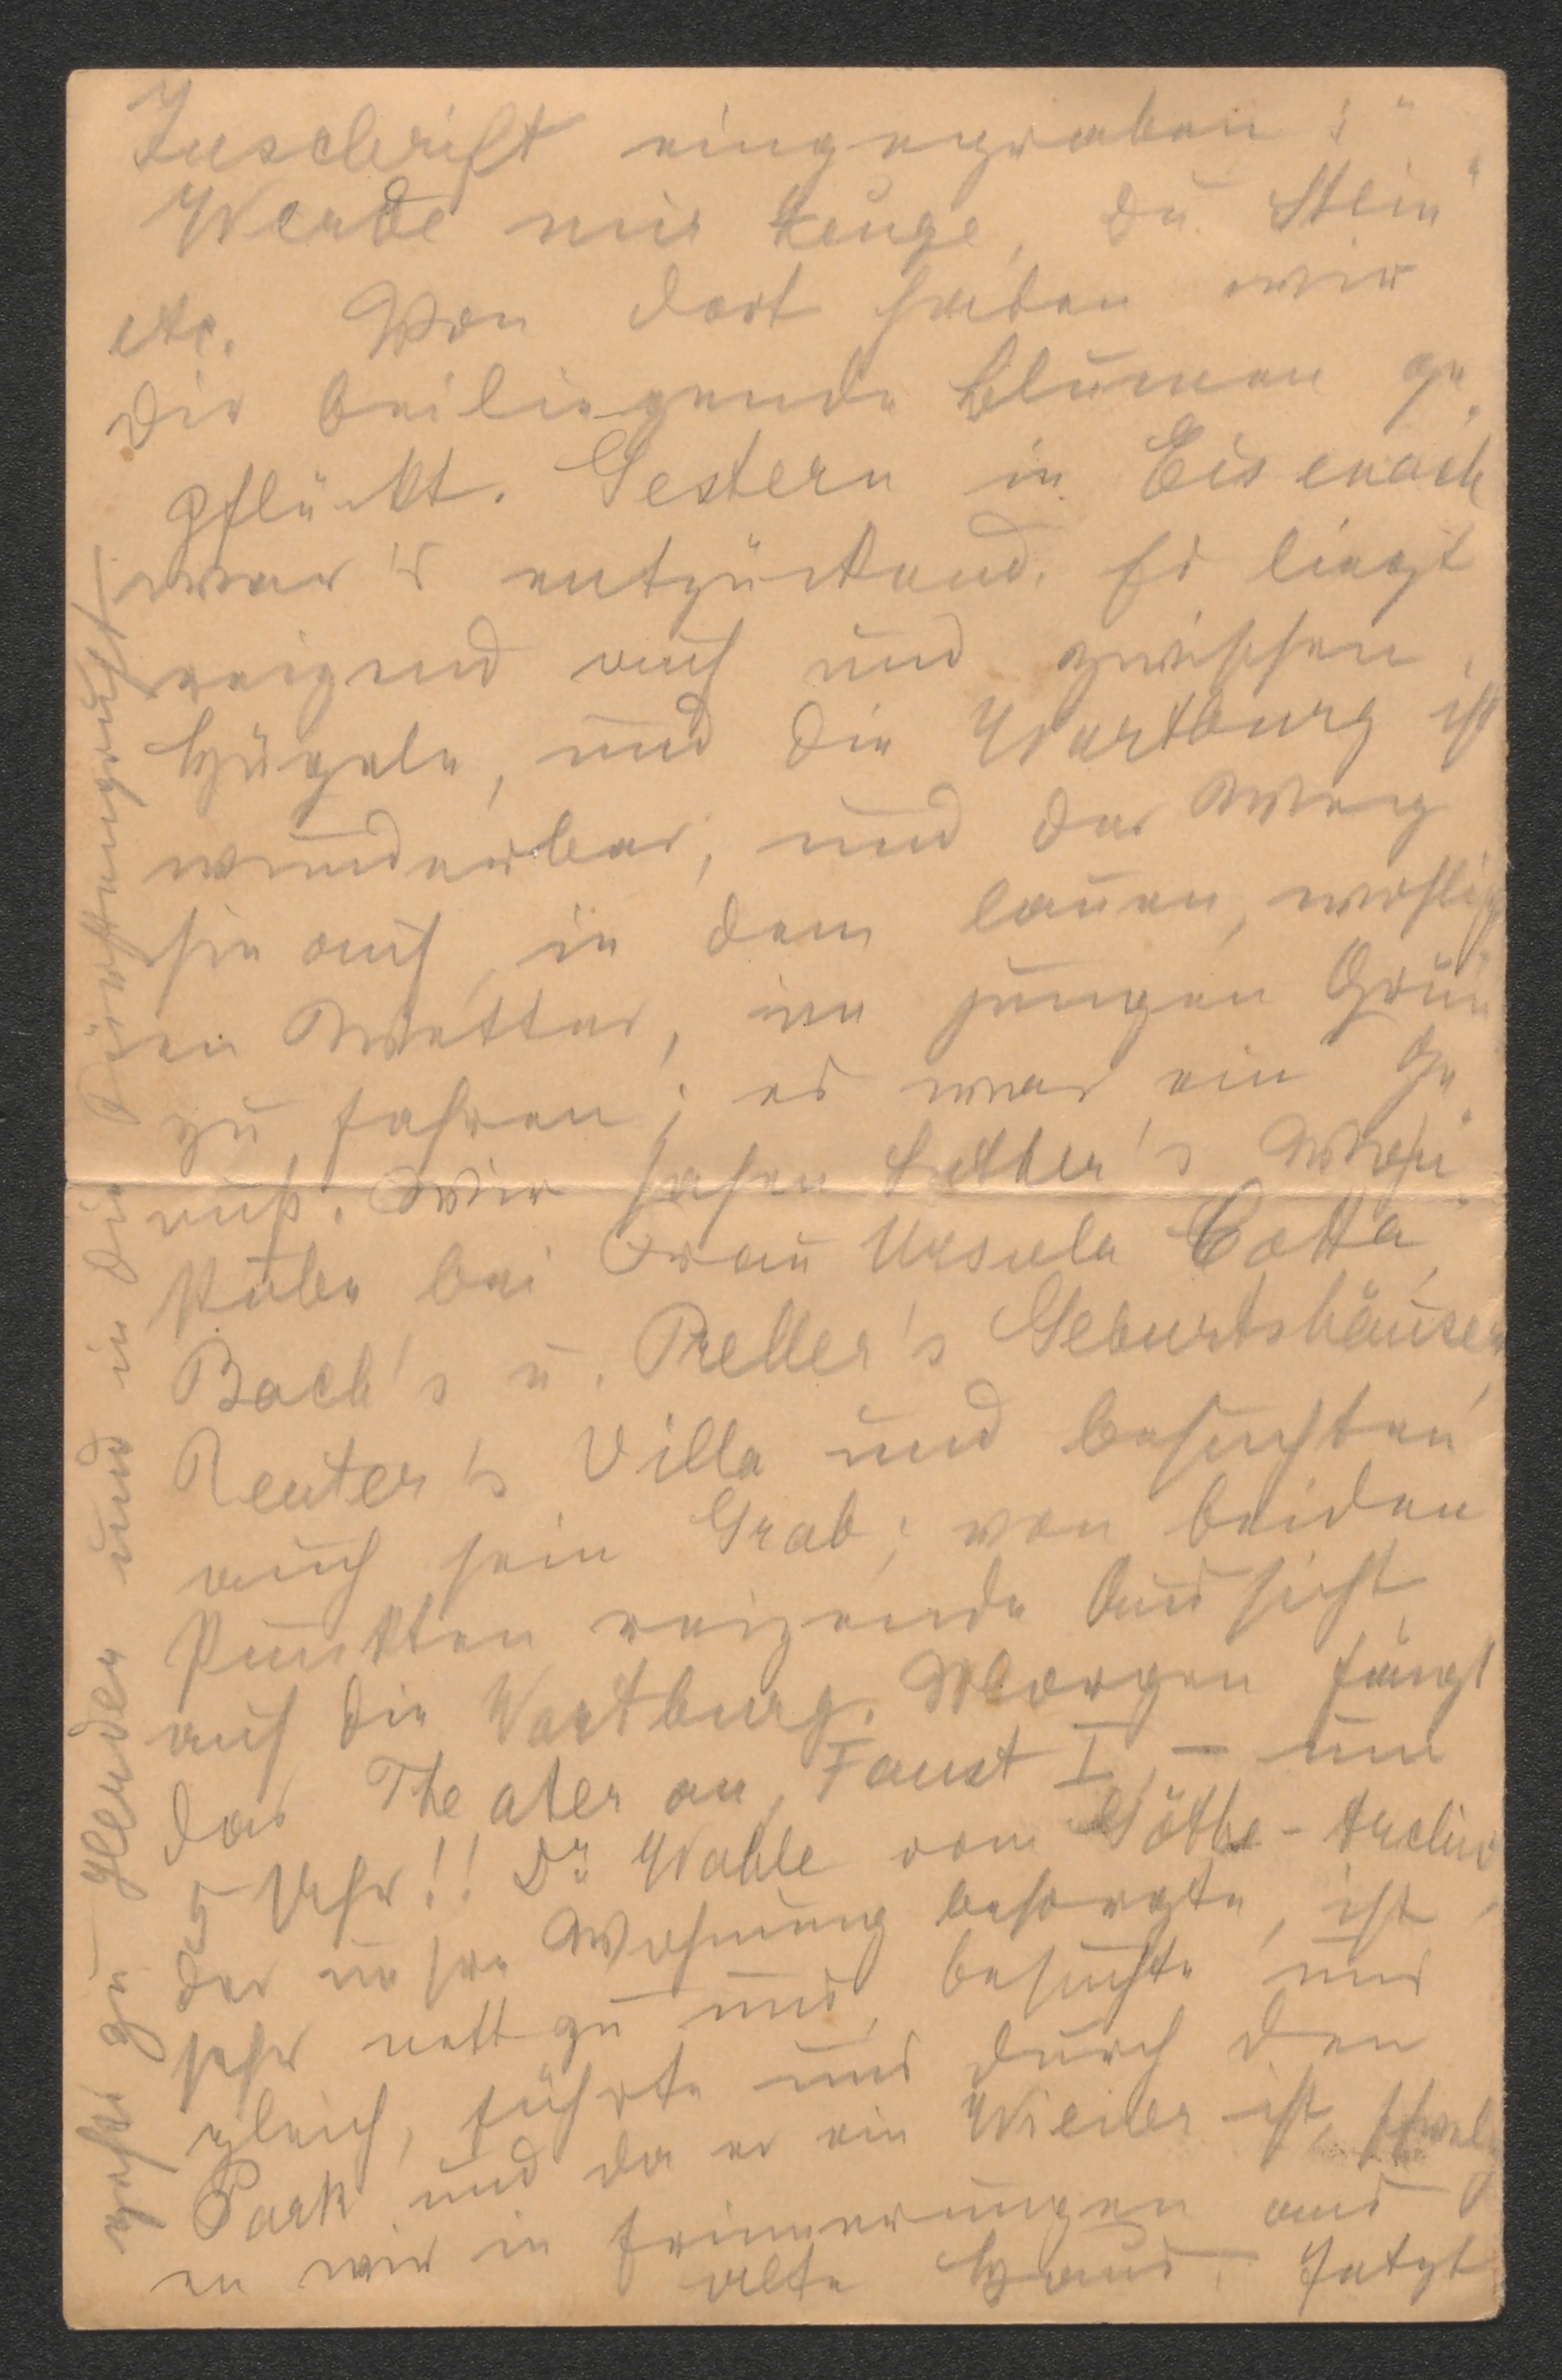 Inschrift eingegraben: "
Werde mir Zeuge, du Stein"
etc. Von dort haben wir
Dir beiliegende Blumen ge-
pflückt. Gestern in Eisenach
war's entzückend. Es liegt
reizend auf und zwischen
Hügeln, und die Wartburg ist
wunderbar, und der Weg
hinauf, in dem lauen, wohlig-
en Wetter, im jungen Grün
zu fahren; es war ein Ge-
nuß. Wir sahen Luther's Wohn-
stube bei Frau Ursula Cotta,
Bach's u. Preller's Geburtshäuser,
Reuter's Villa und besuchten
auch sein Grab; von beiden
Punkten reizende Aussicht
auf die Wartburg. Morgen fängt
das Theater an, Faust I, – um
5 Uhr!! Dr. Wahle vom Göthe-Archiv,
der unsre Wohnung besorgte, ist
sehr nett zu uns, besuchte uns
gleich, führte uns durch den
Park und da er ein Wiener ist, schwelg-
en wir in Erinnerungen ans
alte Haus. Jetzt
geht's zu Herder und in die Fürstengruft –